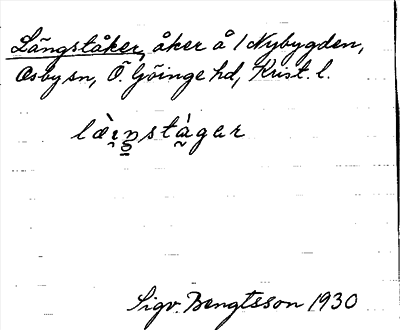 Långståker, åker å 1 Nybygden,
Osby sn, Ö. Göinge hd, Krist. l.
Sigv. Bengtsson 1930